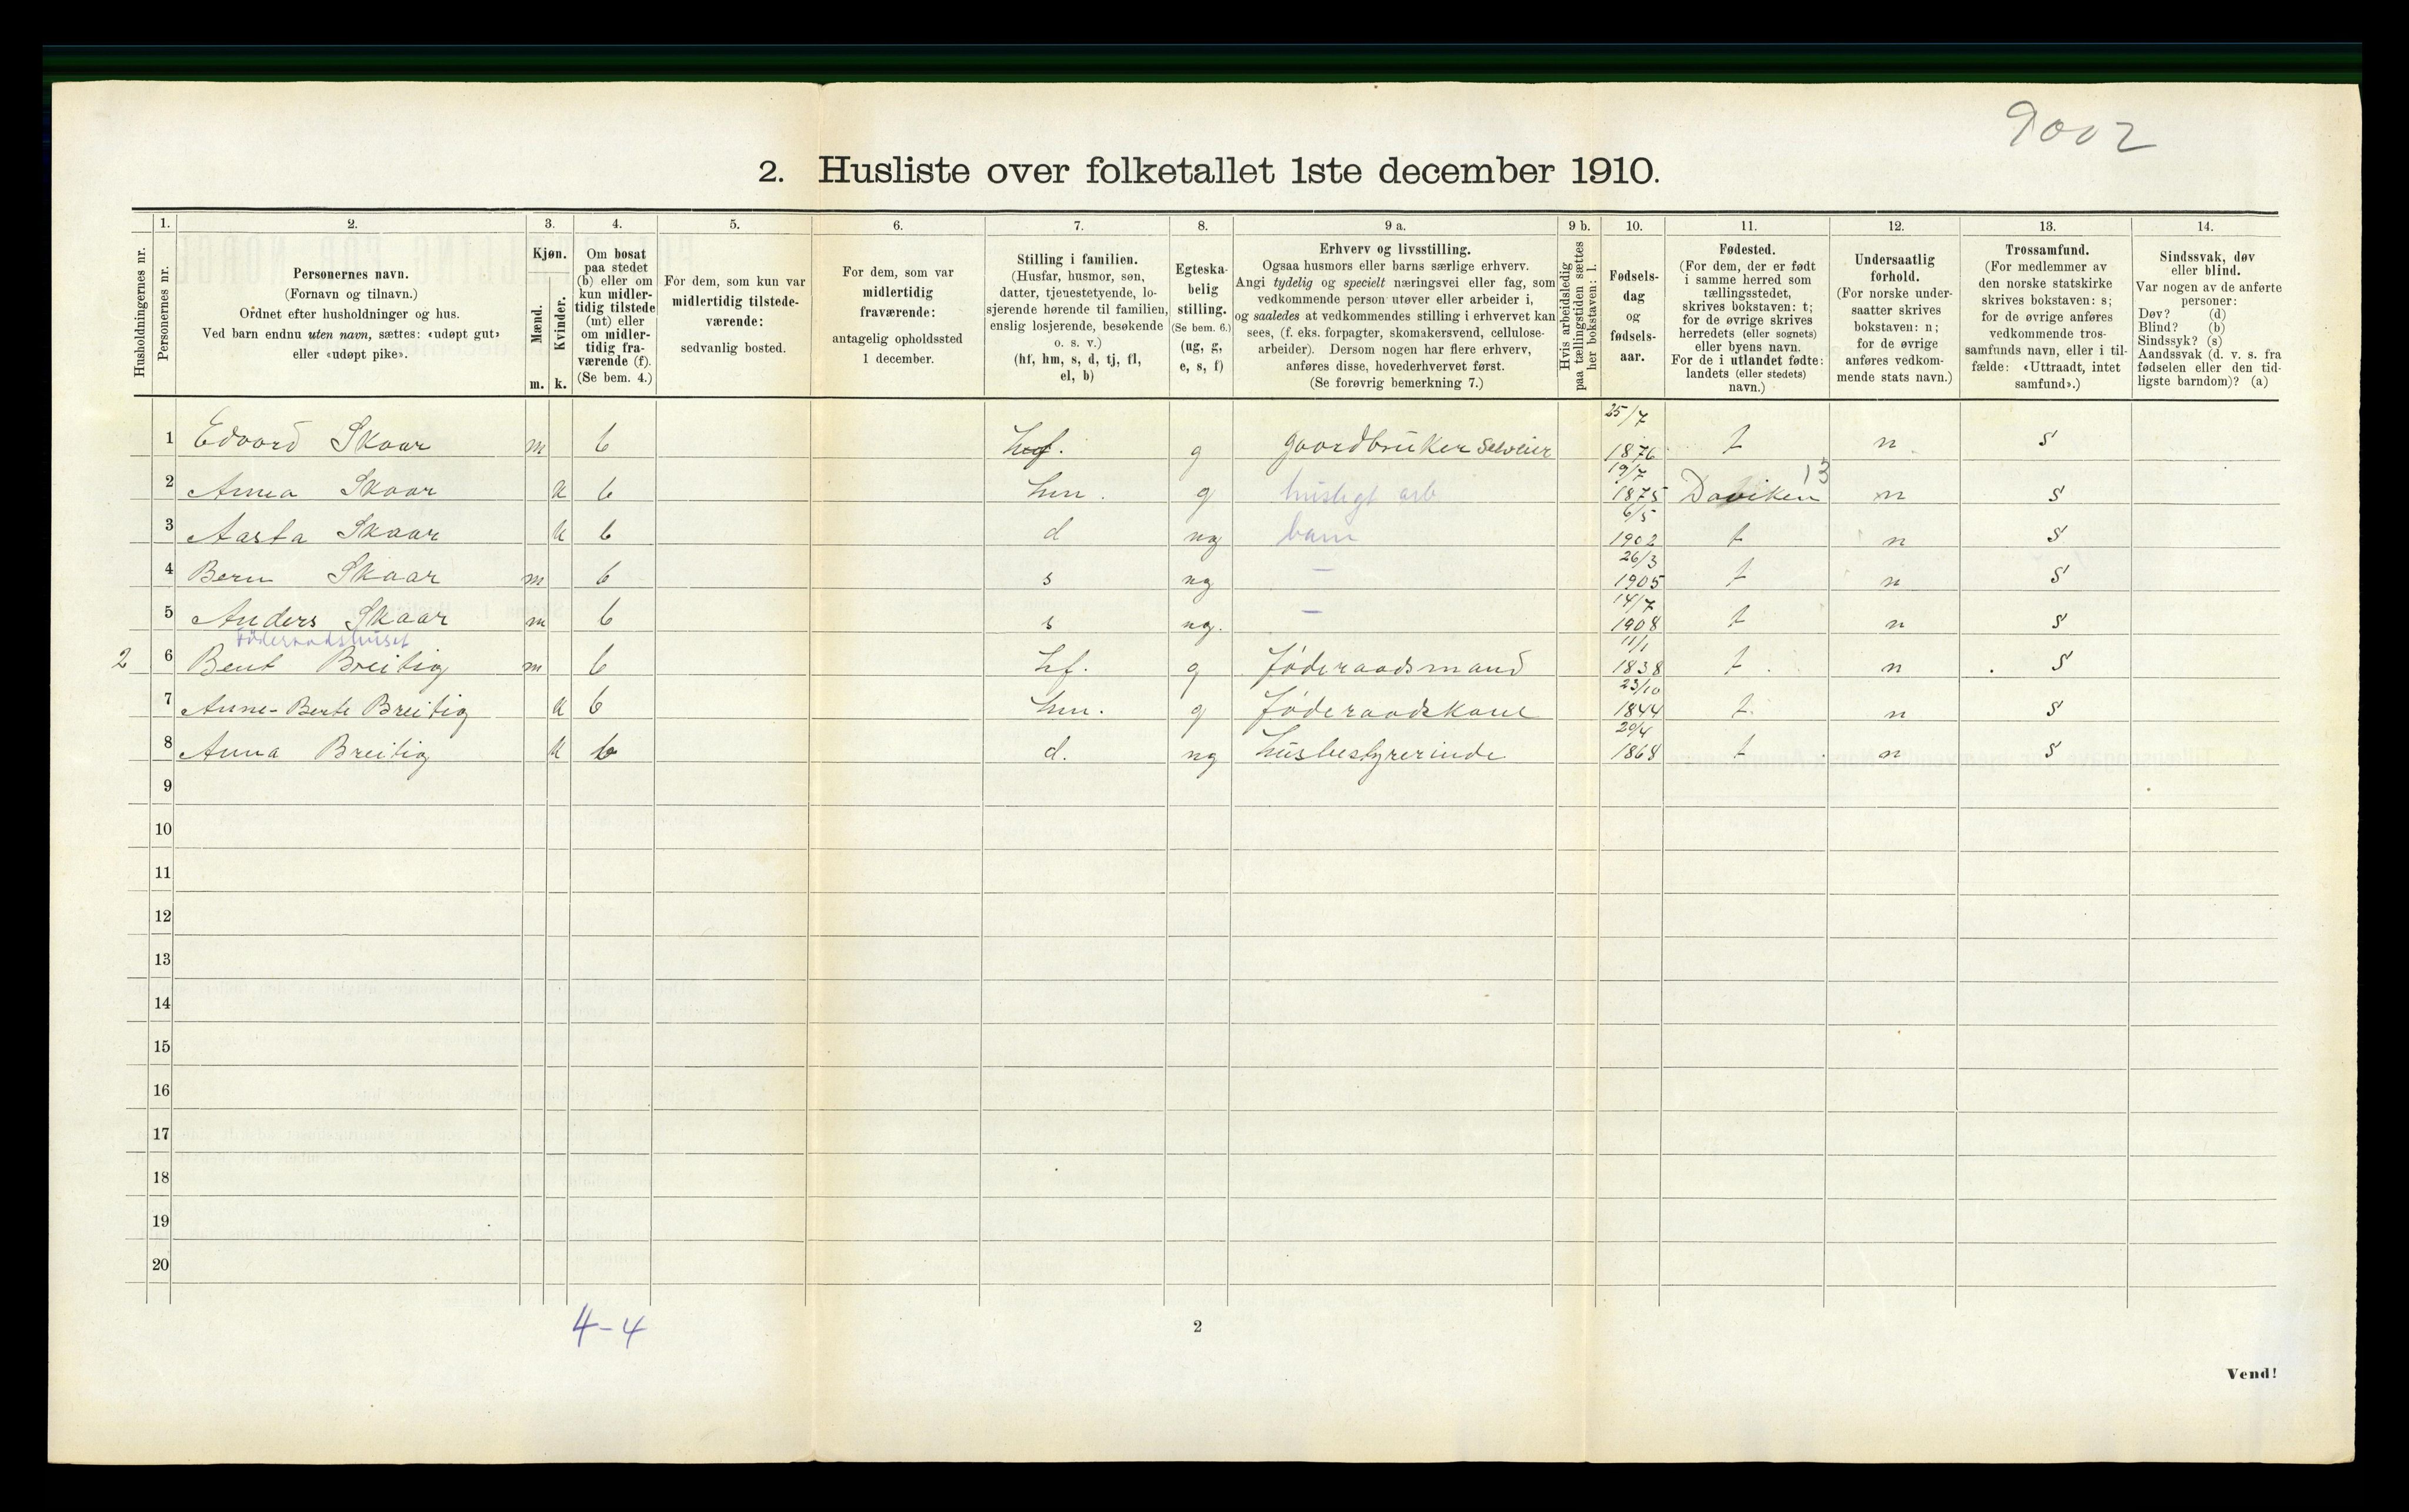 9002
2. Husliste over folketallet 1ste december 1910.
Husholdningernes nr.
1.
Personernes nr.
2.
Personernes navn.
(Fornavn og tilnavn.)
Ordnet efter husholdninger og hus.
Ved barn endnu uten navn, sættes: «udøpt gut»
eller «udøpt pike».
3.
Kjøn.
Mænd.
m.
Kvinder.
k.
4.
Om bosat
paa stedet
(b) eller om
kun midler-
tidig tilstede
(mt) eller
om midler-
tidig fra-
værende (f).
(Se bem. 4.)
5.
For dem, som kun var
midlertidig tilstede-
værende:
sedvanlig bosted.
6.
For dem, som var
midlertidig
fraværende:
antagelig opholdssted
1 december.
7.
Stilling i familien.
(Husfar, husmor, søn,
datter, tjenestetyende, lo-
sjerende hørende til familien,
enslig losjerende, besøkende
o. s. v.)
(hf, hm, s, d, tj, fl,
el, b)
8.
Egteska-
belig
stilling.
(Se bem. 6.)
(ug, g,
e, s, f)
9 a.
Erhverv og livsstilling.
Ogsaa husmors eller barns særlige erhverv.
Angi tydelig og specielt næringsvei eller fag, som
vedkommende person utøver eller arbeider i,
og saaledes at vedkommendes stilling i erhvervet kan
sees, (f. eks. forpagter, skomakersvend, cellulose-
arbeider). Dersom nogen har flere erhverv,
anføres disse, hovederhvervet først.
(Se forøvrig bemerkning 7.)
9 b.
Hvis arbeidsledig
paa tællingstiden sættes
her bokstaven: l.
10.
Fødsels-
dag
og
fødsels-
aar.
11.
Fødested.
(For dem, der er født
i samme herred som
tællingsstedet,
skrives bokstaven: t;
for de øvrige skrives
herredets (eller sognets)
eller byens navn.
For de i utlandet fødte:
landets (eller stedets)
navn.)
12.
Undersaatlig
forhold.
(For norske under-
saatter skrives
bokstaven: n;
for de øvrige
anføres vedkom-
mende stats navn.)
13.
Trossamfund.
(For medlemmer av
den norske statskirke
skrives bokstaven: s;
for de øvrige anføres
vedkommende tros-
samfunds navn, eller i til-
fælde: «Uttraadt, intet
samfund».)
14.
Sindssvak, døv
eller blind.
Var nogen av de anførte
personer:
Døv? (d)
Blind? (b)
Sindssyk? (s)
Aandssvak (d. v. s. fra
fødselen eller den tid-
ligste barndom)? (a)
1 Edvard Skaar m b hf. g gaardbruker Selveier 25/7 1876 t n s
2 Anna Skaar k b hm. g husligt arb 19/7 1875 Daviken 13 n s
3 Aasta Skaar k b d ug barn 6/5 1902 t n s
4 Bern Skaar m b s ug – 26/3 1905 t n s
5 Anders Skaar m b s ug. – 14/7 1908 t n s
Föderaadshuset
2 6 Bent Breitig m b hf. g föderaadsmand 11/1 1838 t. n s
7 Anne-Berte Breitig k b hm. g föderaadskone 23/10 1844 t. n s
8 Anna Breitig k b d. ug husbestyrerinde 20/4 1868 t n s
9
10
11
12
13
14
15
16
17
18
19
20
4-4
2
Vend!